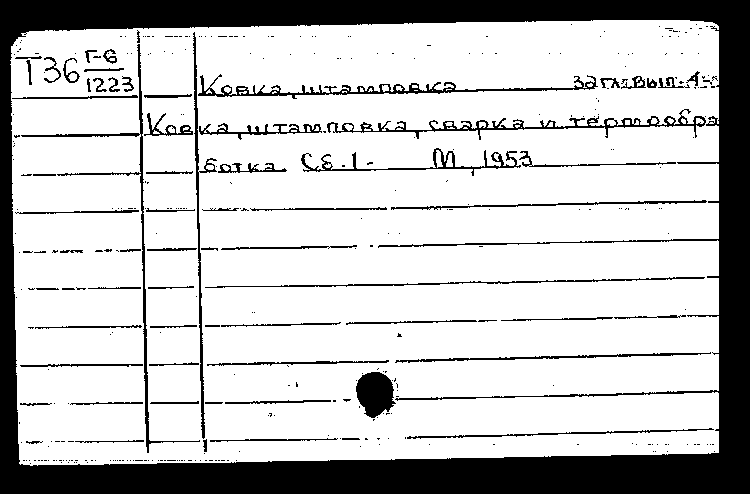 Т36 Г-6
1223
Ковка, штамповка загл. вып. 4-
Ковка, штамповка, сварка и термообра
ботка. Сб. 1.- М., 1953